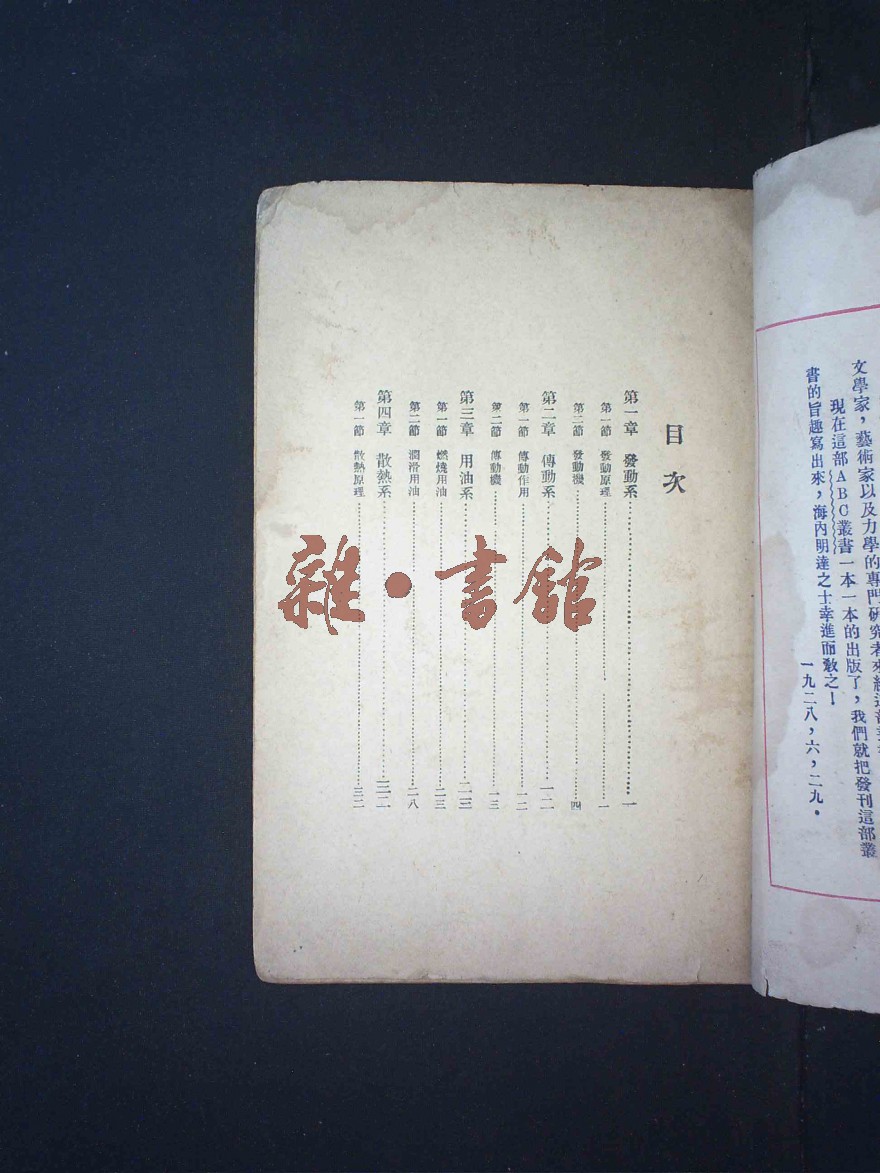 文學家，藝術家以及力學的專門研究者來
現在這部ABC叢書一本一本的出版了，我們就把發刊這部叢
書的旨趣寫出來，海內明達之士幸進而敎之！
一九二八，六，二九．
目次
第一章 發動系……一
第一節 發動原理……一
第二節 發動機……四
第二章 傳動系……一二
第一節 傳動作用……一二
第二節 傳動機……一三
第三章 用油系……二三
第一節 燃燒用油……二三
第二節 潤滑用油……二八
第四章 散熱系……三二
第一節 散熱原理……三二
雜·書館